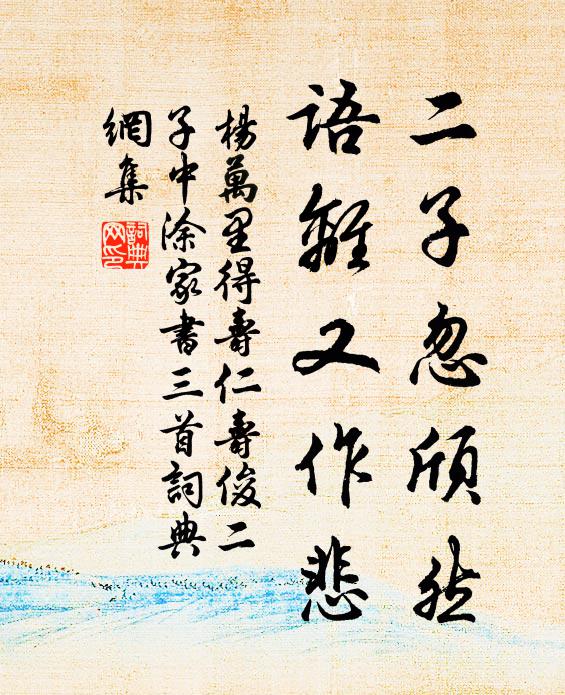 二子忽頎然
語離又作悲
楊萬里得壽仁壽俊二
子中涂家書三首詞典
網集
詞典
网印